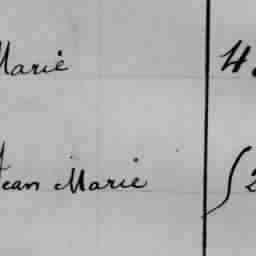 Marie 4
Jean Marie 2